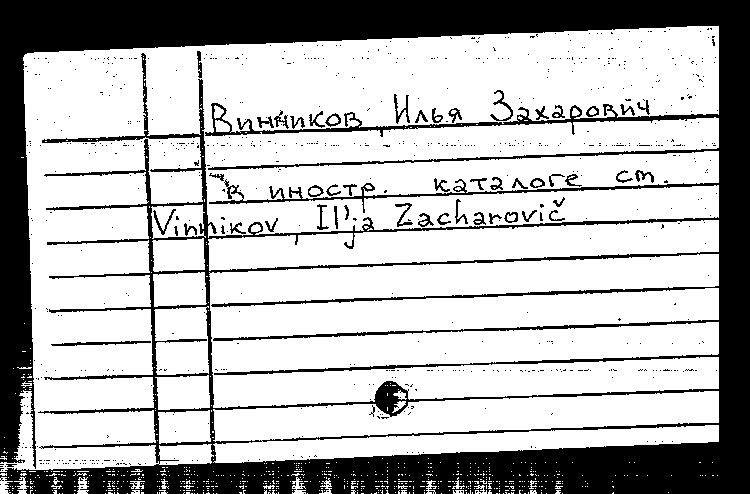 Винников, Илья Захарович
в иностр. каталоге ст.
Vinnikov, Il'ja Zacharovič